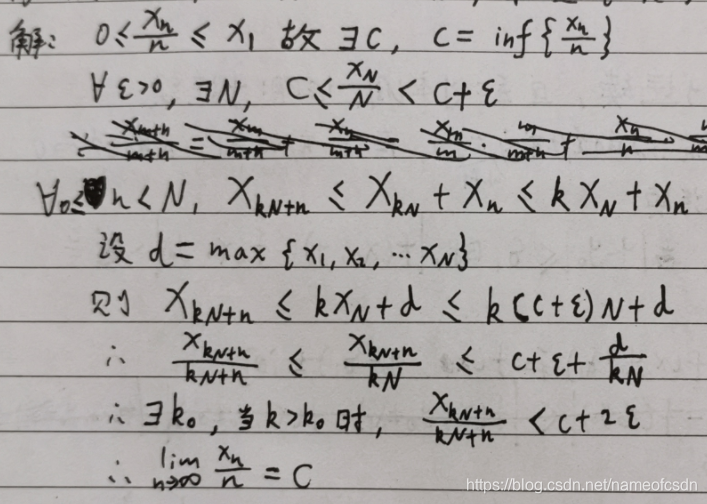 解: 0≤x_n/n ≤ x_1 故 ∃C, C = inf{x_n/n}
∀ε>0, ∃N, C≤x_N/N < C+ε
∀0≤n<N, x_{kN+n} ≤ x_{kN} + x_n ≤ k x_N + x_n
设 d = max {x_1, x_2, … x_N}
则 x_{kN+n} ≤ kx_N+d ≤ k(C+ε)N+d
∴ x_{kN+n}/(kN+n) ≤ x_{kN+n}/(kN) ≤ C+ε+d/(kN)
∴ ∃k_0, 当k>k_0时, x_{kN+n}/(kN+n) < C+2ε
∴ lim_{n→∞} x_n/n = C
https://blog.csdn.net/nameofcsdn